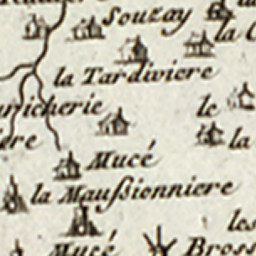 Souzay
la C
la Tardiviere
richerie
le
ere
la
Mucé
la Maußionniere
les
Mucé
Bross